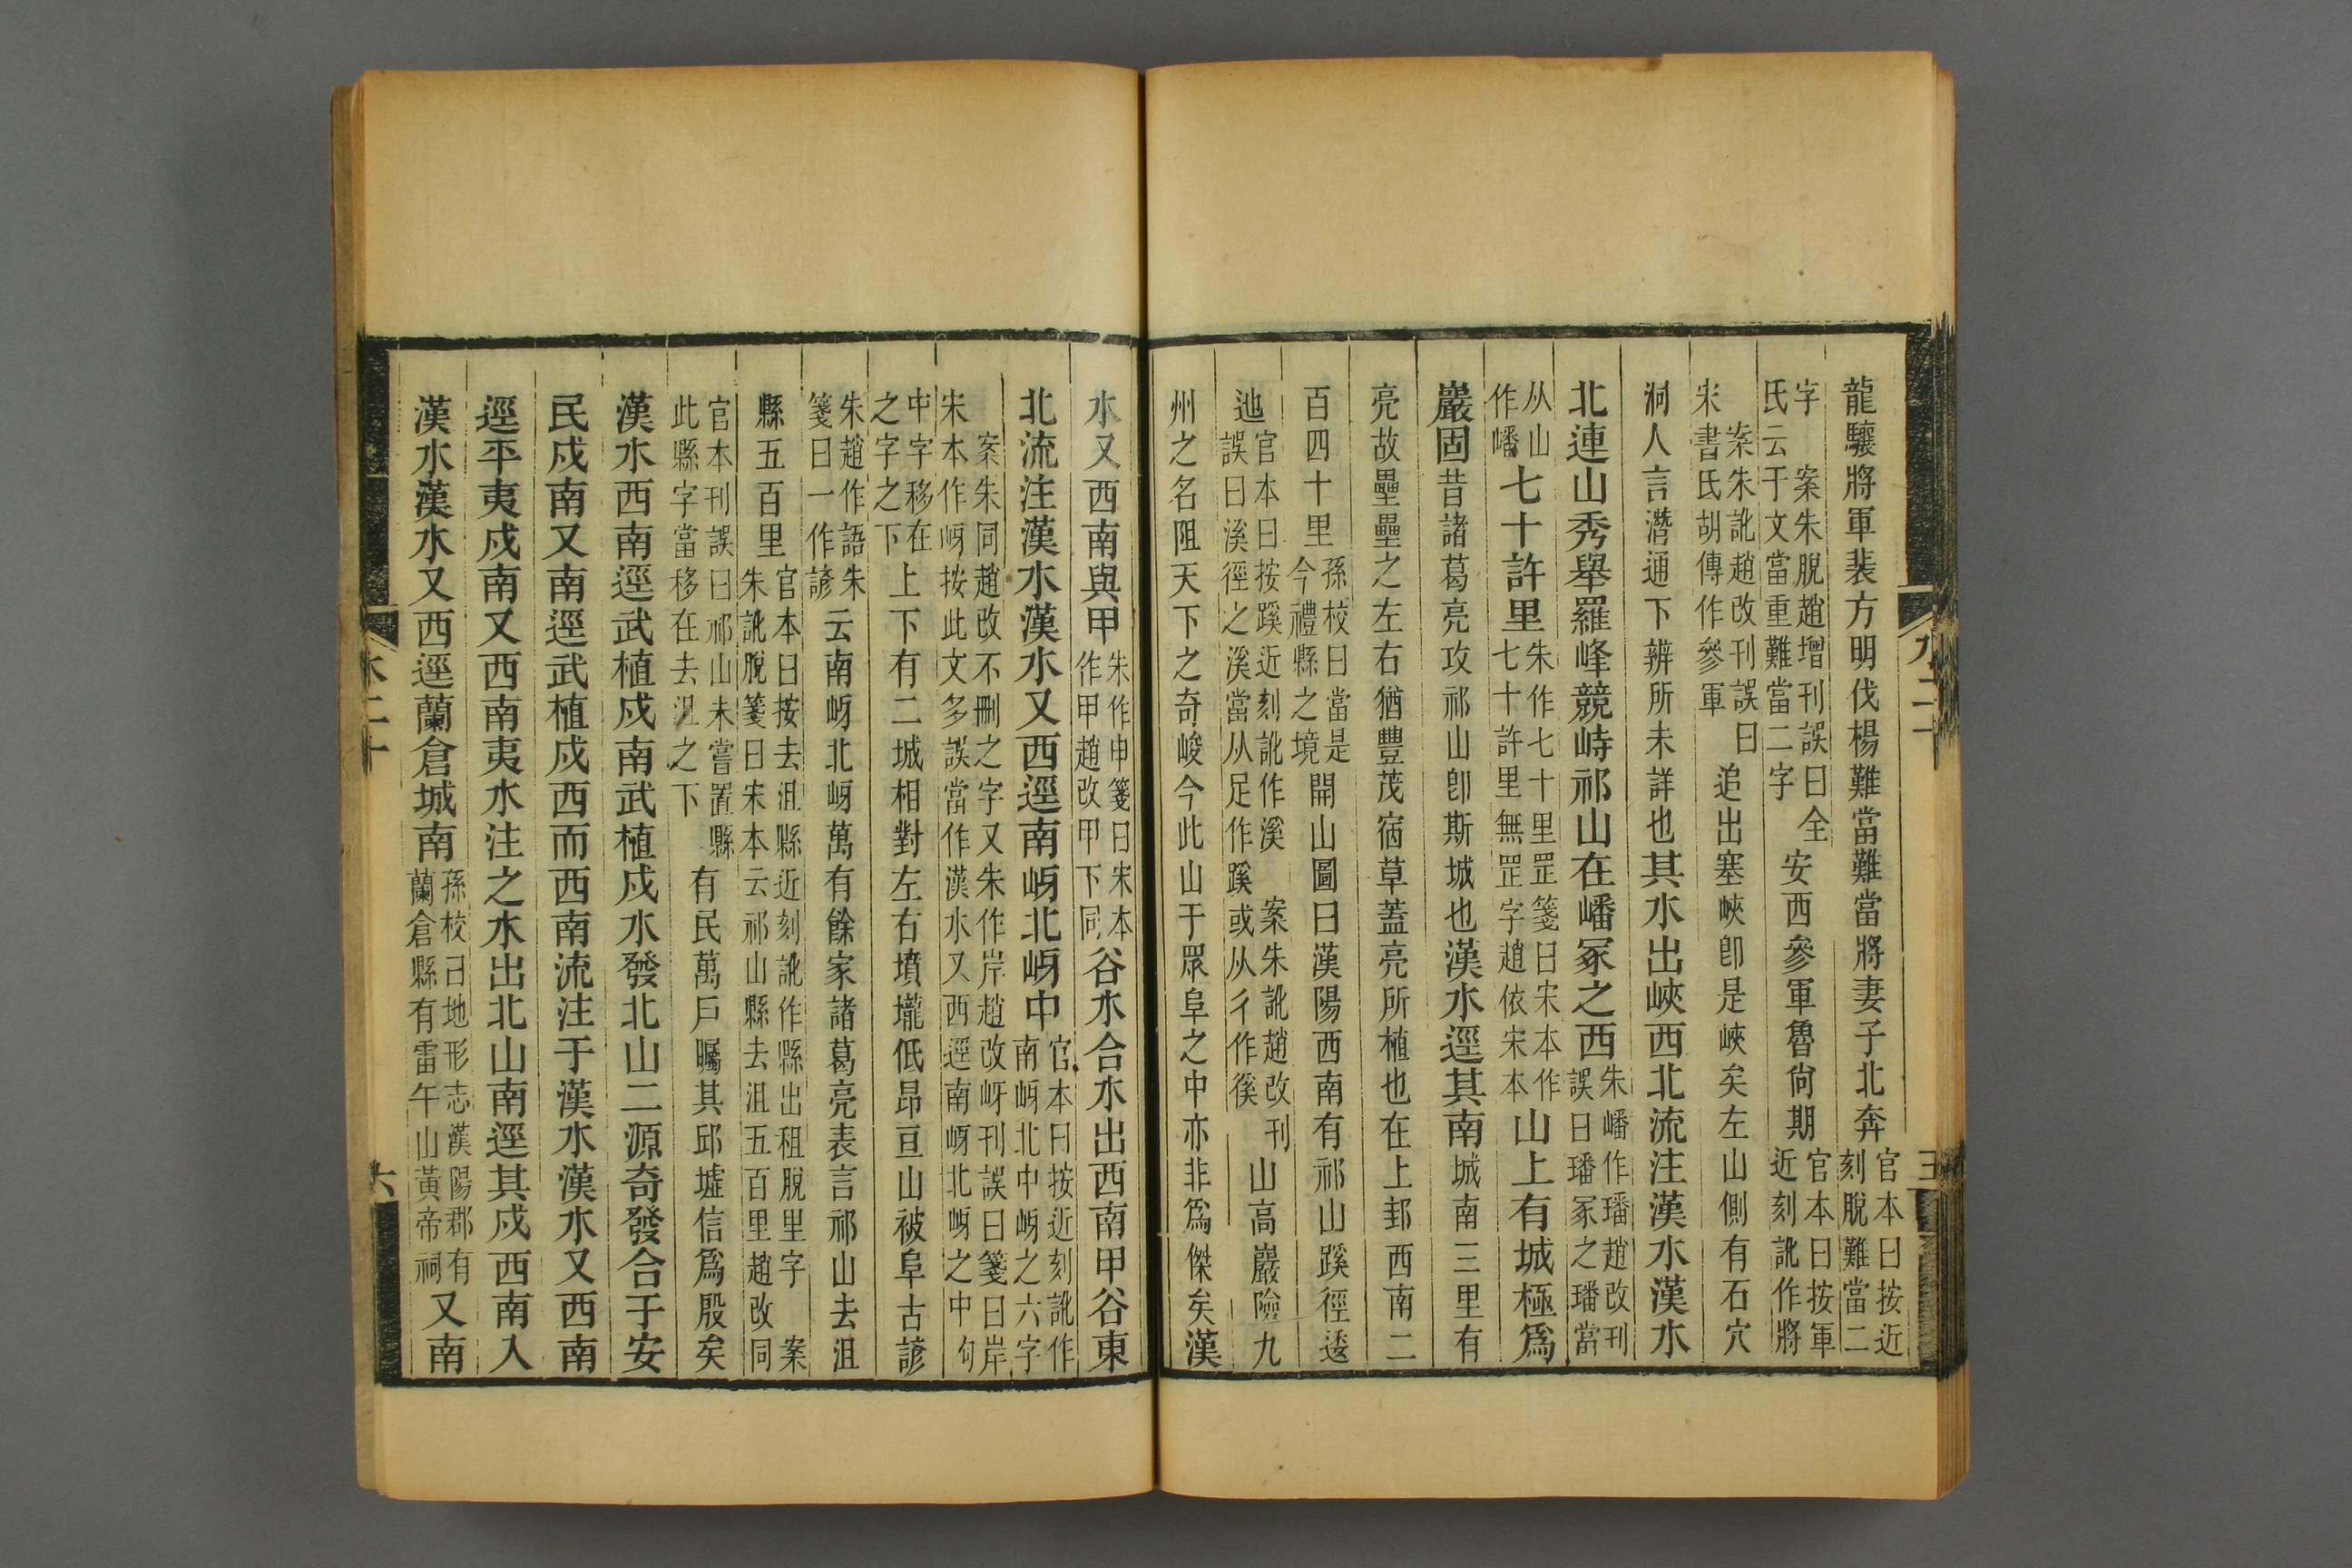 龍驤將軍裴方明伐楊難當難當將妻子北奔官本曰按近刻脫難當二
字 案朱脫趙增刊誤曰全氏云于文當重難當二字安西參軍魯尙期官本曰按軍近刻訛作將
案朱訛趙改刊誤曰宋書氐胡傳作參軍追出塞峽卽是峽矣左山側有石穴
洞人言潛通下辨所未詳也其水出峽西北流注漢水漢水
北連山秀舉羅峰競峙祁山在嶓冢之西朱嶓作璠趙改刊誤曰璠冢之璠當
从山作嶓七十許里朱作七十里罡箋曰宋本作七十許里無罡字趙依宋本山上有城極爲
嚴固昔諸葛亮攻祁山卽斯城也漢水逕其南城南三里有
亮故壘壘之左右猶豐茂宿草蓋亮所植也在上邽西南二
百四十里孫校曰當是今禮縣之境開山圖曰漢陽西南有祁山蹊徑逶
迆官本曰按蹊近刻訛作溪 案朱訛趙改刊誤曰溪徑之溪當从足作蹊或从彳作徯山高巖險九
州之名阻天下之奇峻今此山于眾阜之中亦非爲傑矣漢
水又西南與甲朱作申箋曰宋本作甲趙改甲下同谷水合水出西南甲谷東
北流注漢水漢水又西逕南岈北岈中官本曰按近刻訛作南岈北中岈之六字
案朱同趙改不刪之字又朱作岸趙改岈刊誤曰箋曰岸宋本作岈按此文多誤當作漢水又西逕南岈北岈之中句
中字移在之字之下上下有二城相對左右墳壠低昂亘山被阜古諺
朱趙作語朱箋曰一作諺云南岈北岈萬有餘家諸葛亮表言祁山去沮
縣五百里官本曰按去沮縣近刻訛作縣出租脫里字 案朱訛脫箋曰宋本云祁山縣去沮五百里趙改同
官本刊誤曰祁山未嘗置縣此縣字當移在去沮之下有民萬戶矚其邱墟信爲殷矣
漢水西南逕武植戍南武植戍水發北山二源奇發合于安
民戍南又南逕武植戍西而西南流注于漢水漢水又西南
逕平夷戍南又西南夷水注之水出北山南逕其戍西南入
漢水漢水又西逕蘭倉城南孫校曰地形志漢陽郡有蘭倉縣有雷午山黃帝祠又南